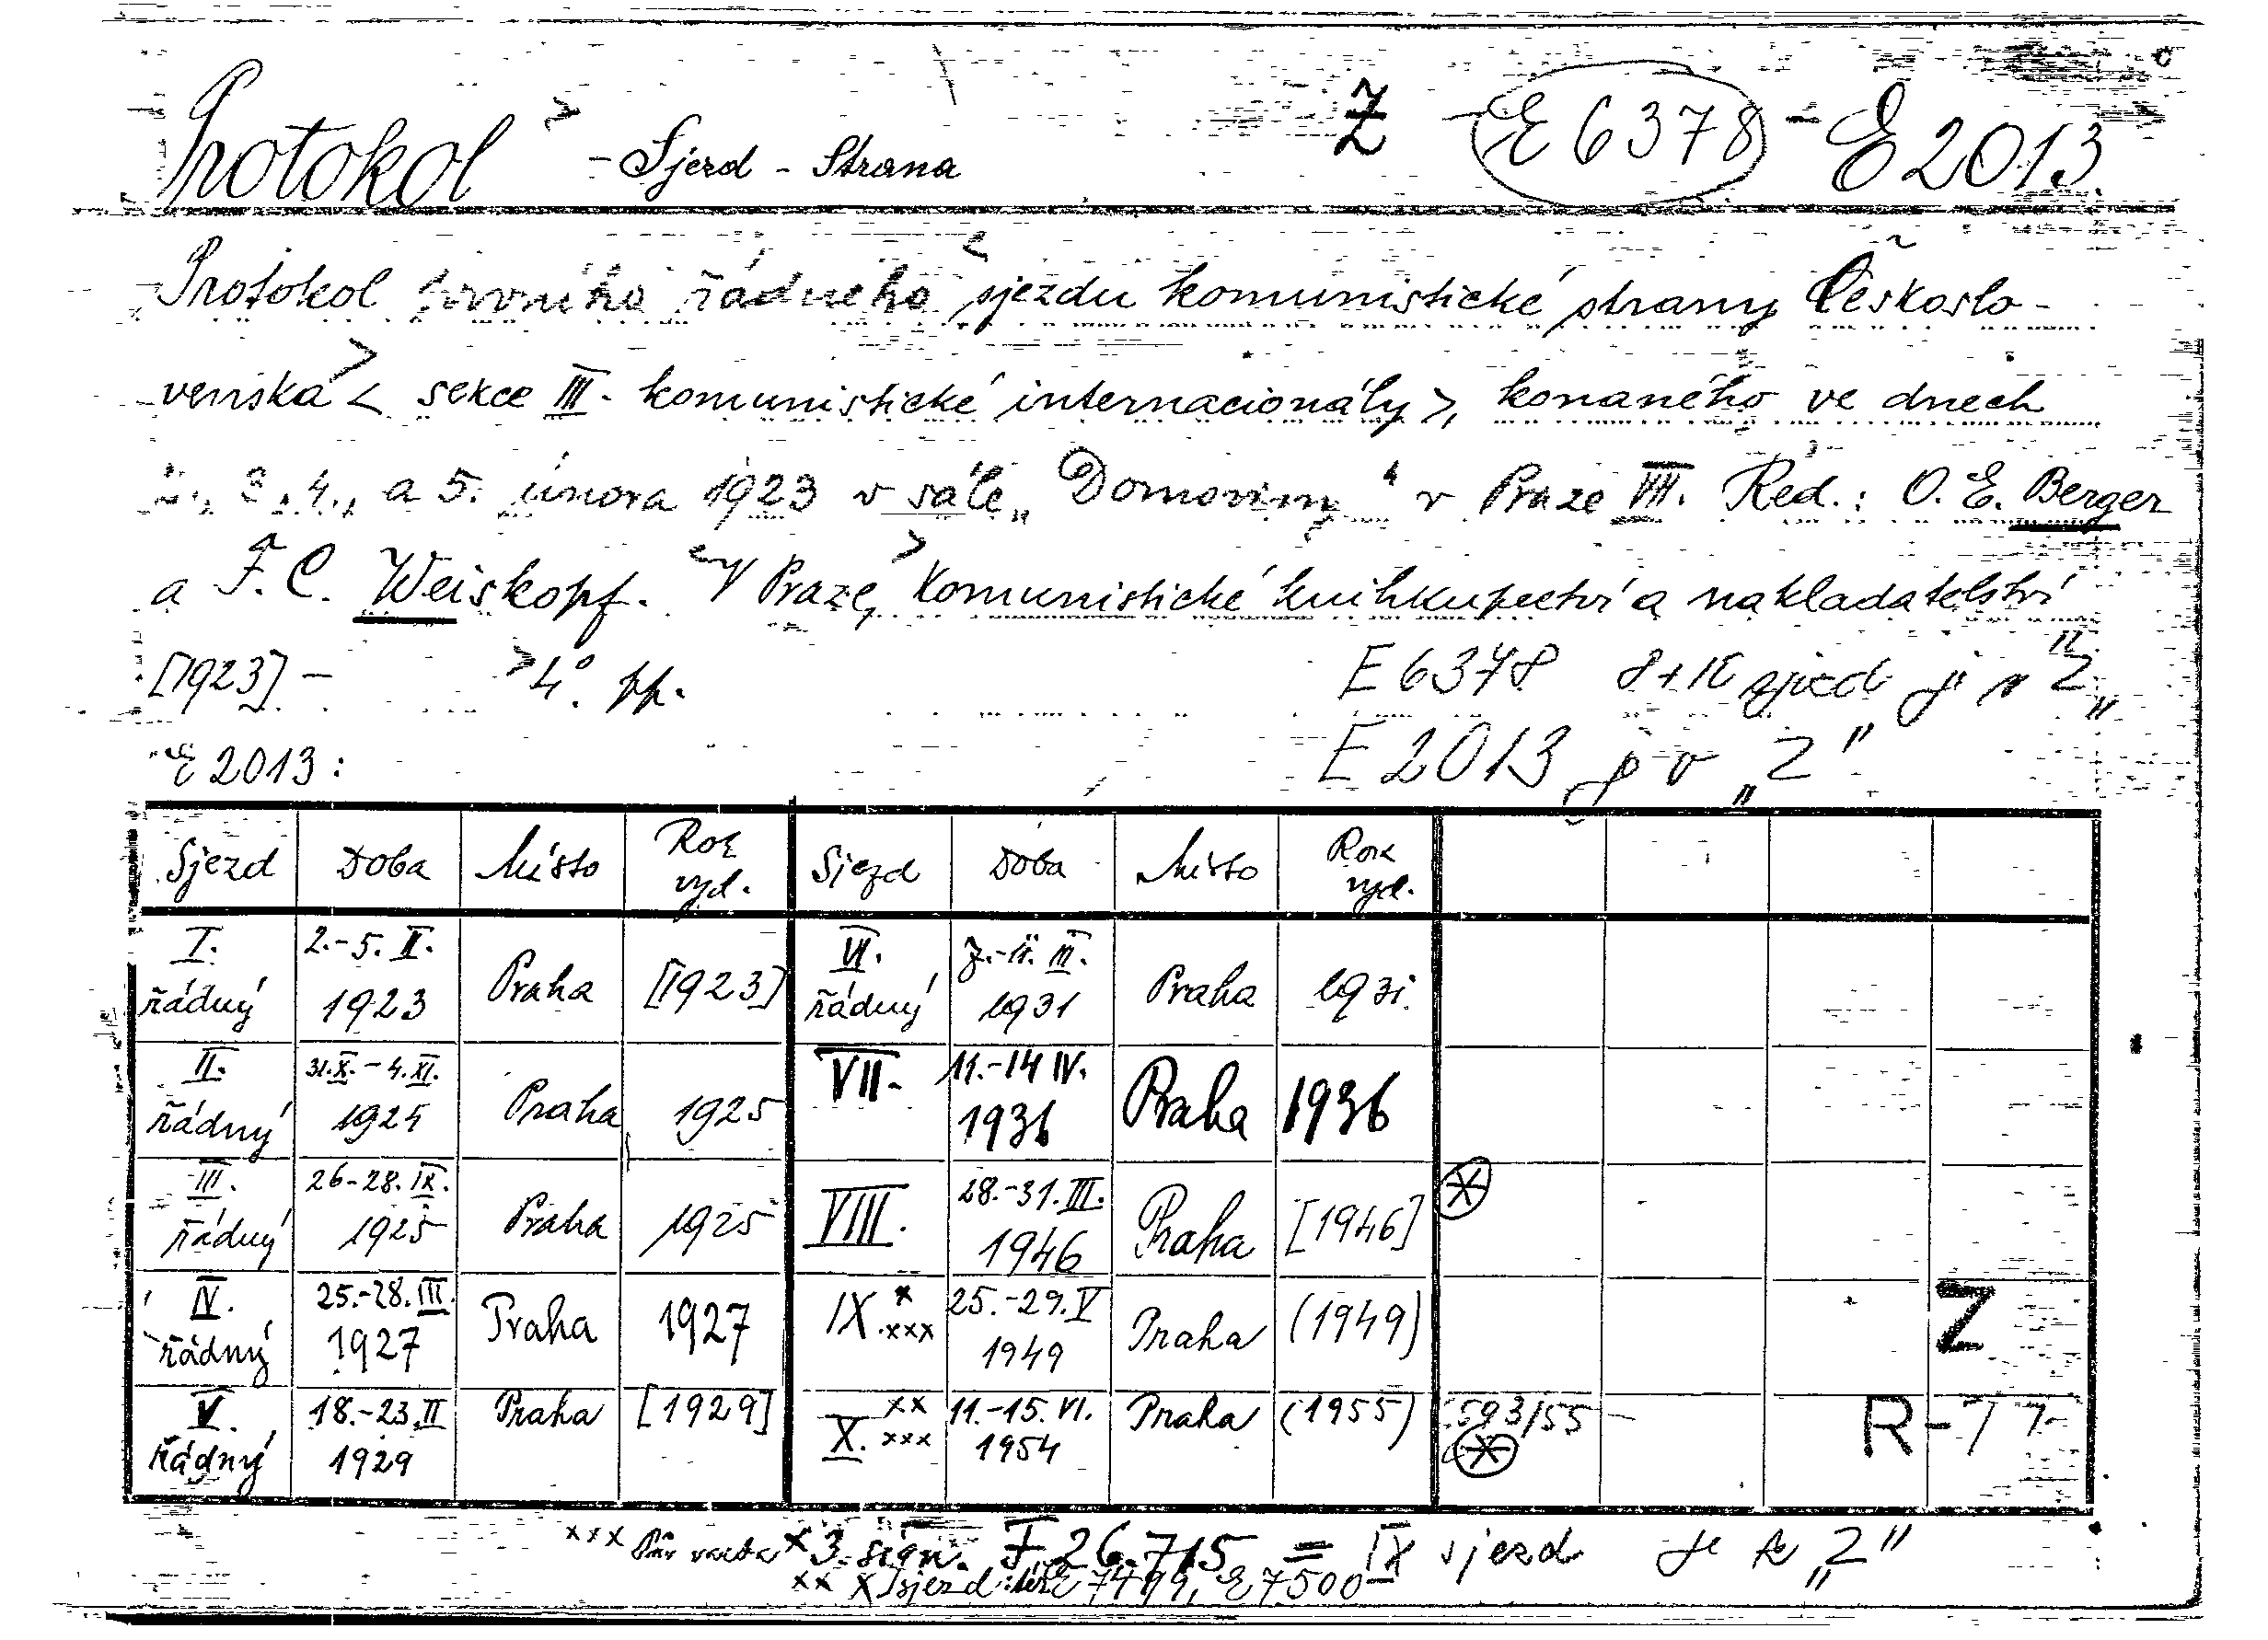 Protokol - Sjezd - Strana Z - E 6378 - E 2013.
Protokol prvního řádného sjezdu komunistické strany Českoslo-
venska < sekce III. komunistické internacionály >, konaného ve dnech
2., 3., 4., a 5. února 1923 v sále „Domoviny“ v Praze VII. Red.: O. E. Berger
a F. C. Weiskopf. V Praze, Komunistické knihkupectví a nakladatelství
[1923] - 4°. pp. E 6378 8 + IX sjezd je v „Z“
E 2013: E 2013 je v „Z“
Sjezd Doba Místo Rok vyd. Sjezd Doba Místo Rok vyd.
I. řádný 2.-5. II. 1923 Praha [1923] VI. řádný 7.-11. III. 1931 Praha 1931
II. řádný 31.X.-4.XI. 1924 Praha 1925 VII. 11.-14 IV. 1936 Praha 1936
III. řádný 26-28. IX. 1925 Praha 1925 VIII. 28.-31. III. 1946 Praha [1946]
IV. řádný 25.-28. III. 1927 Praha 1927 IX x xxx 25.-29. V 1949 Praha (1949) Z
V. řádný 18.-23. II 1929 Praha [1929] X. xx xxx 11.-15. VI. 1954 Praha (1955) 593/55 R-77
xxx x 3. sign. F 26.715 = IX sjezd je v „Z“
xx X sjezd: též E 7499, E 7500